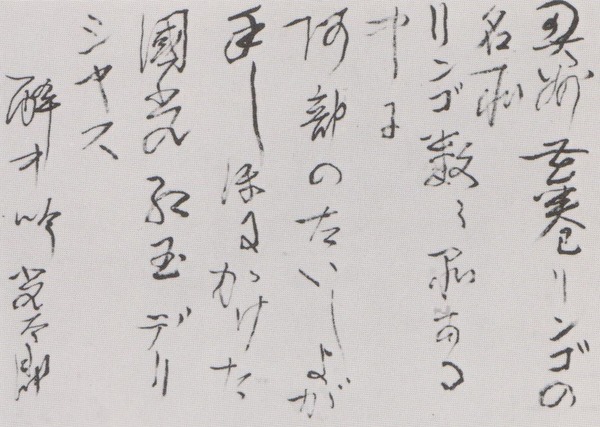 奥州花巻リンゴの
名所
リンゴ数々品ある
中に
阿部のたいしよが
手しほにかけた
國光紅玉デリ
シヤス
酔中吟 光太郎